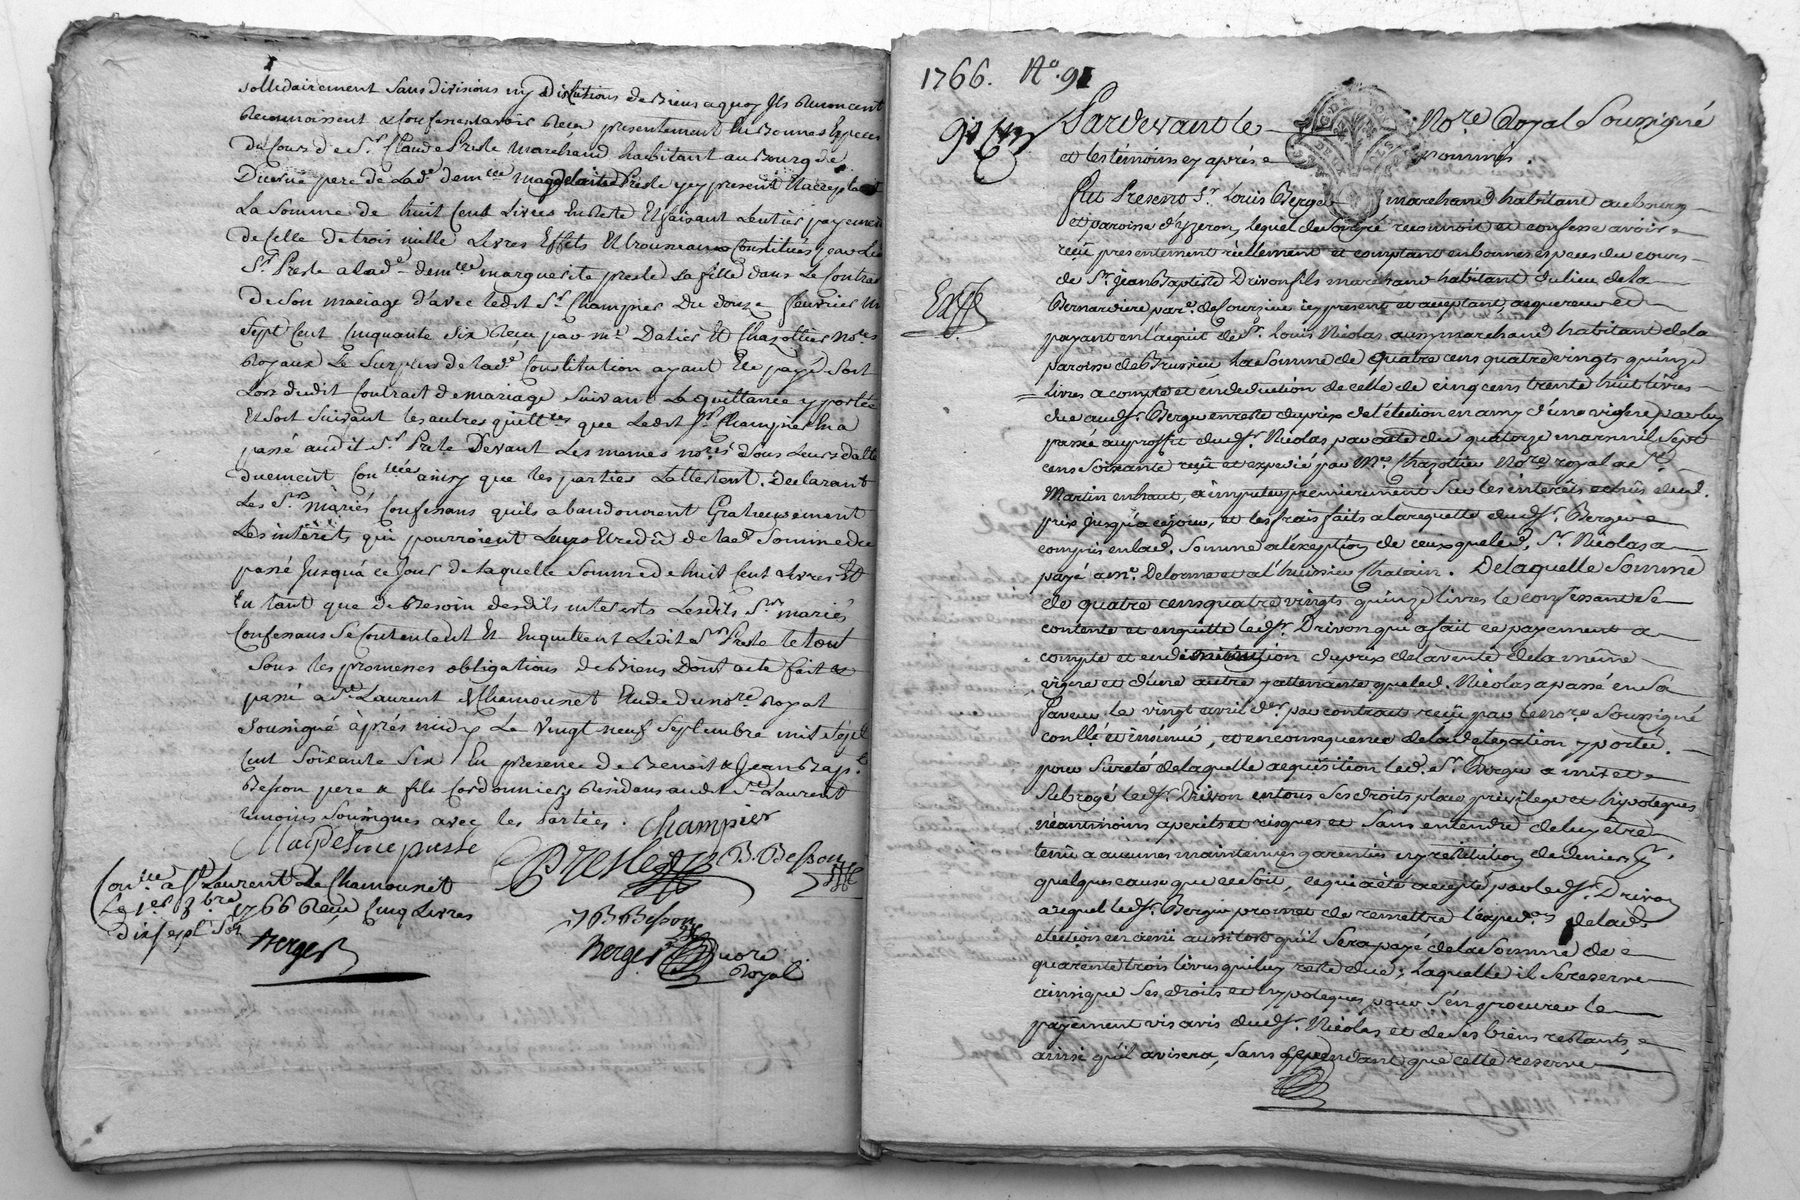 sollidairement sans divisions ny discutions de biens a quoy ils renoncent
reconnoissent & confessent avoir reçu presentement en bonnes especes
du cours de Sr. Claude Presle marchand habitant au bourg de
Duerne pere de lad.e dem.lle Magdelaine Presle icy present & acceptant
La somme de huit cent livres en reste et faisant l'entier payement
de celle de trois mille livres effets et trousseaux constitués par led.
Sr. Presle a lad.e demlle marguerite presle sa fille dans le contrat
de son mariage d'avec ledit Sr. Champier du douze fevrier m
sept cent cinquante six reçu par me. Dalier et Chazottier nores
royaux le surplus de lad.e Constitution ayant été payé soit
lors dudit contrat de mariage suivant la quittance y portée
et soit suivant les autres quitt.ces que ledit Sr. Champier en a
passé audit Sr. Presle devant les memes nores. sous leurs datte
duement conllée ainsy que les parties l'attestent. Declarant
Les Srs. mariés confessans qu'ils abandonnent gratieusement
Les intérêts qui pourroient leurs être dû de lad. somme du
passé jusqu'a ce jour de laquelle somme de huit cent livres et
en tant que de besoin desdits interêts lesdits Srs. mariés
confessans se contentent et en quittent ledit Sr. Presle le tout
sous les promesses obligations de biens dont acte fait &
passé a St. Laurent de Chamousset etude du nore. royal
soussigné après midy le vingt neuf septembre mil sept
cent soixante six en presence de Benoit & Jean Bapt.
Besson pere & fils cordonniers residans aud. St. Laurent
temoins soussignes avec les parties. Champier
Magdeleine presle
Presle B. Besson
JB Besson
Berger nore
Royal
Conllé a St. Laurent de Chamousset
Le 1er 8bre 1766 reçu cinq livres
dix sept sols
Berger
1766. No. 91
Pardevant le nore. Royal Soussigné
et les témoins cy après nommés.
Fut Present Sr. Louis Berger marchand habitant au bourg
et paroisse d'yzeron, lequel de son gré reconnoit et confesse avoir
reçû presentement réellement et comptant en bonnes espèces du cours
de Sr. Jean Baptiste Drivon fils marchand habitant du lieu de la
Bernardiere par.e de Coursieu icy present et acceptant acquereur et
payant en l'acquit de Sr. Louis Nicolas aussy marchand habitant de la
paroisse de Brussieu La Somme de quatre cens quatre vingts quinze
livres a compte et en deduction de celle de cinq cens trente huit livres
due aud. Sr. Berger en reste du prix de l'élection en amy d'une vigne par luy
passée au proffit dud. Sr. Nicolas par acte du quatorze mars mil sept
cens soixante reçû et expedié par Me. Chazottier Nore. royal a St.
Martin en haut, a imputer premierement sur les intérêts echus dud.
prix jusqu'a ce jour, et les frais faits a la requette dud. Sr. Berger
compris en lad. somme a l'exeption de ceux que led. Sr. Nicolas a
payé a me. Delorme et a l'huissier Chatain. De laquelle Somme
de quatre cens quatre vingts quinze livres le confessant se
contente et en quitte led. Sr. Drivon qui a fait ce payement a
compte et en diminution du prix de la vente de la même
vigne et d'une autre y attenante que led. Nicolas a passé en sa
faveur le vingt avril der. par contrat reçû par le nore. soussigné
conllé et insinué, et en consequence de la delegation y portée.
pour sureté de laquelle acquisition led. Sr. Berger a mis et
subrogé led. Sr. Drivon en tous ses droits place privilege et hypoteques
néantmoins a perils et risques et sans entendre de luy être
tenu a aucunes maintenues garenties ny restitution de deniers p.r
quelque cause que ce soit, ce qui a été accepté par led. Sr. Drivon
auquel led. Sr. Berger promet de remettre l'exped.on de lad.
élection en ami aussitôt qu'il sera payé de la somme de
quarente trois livres qui luy reste due, laquelle il se reserve
ainsi que ses droits et hypoteques pour s'en procurer le
payement vis avis dud. Sr. Nicolas et de ses biens restants,
ainsi qu'il avisera, sans cependant que cette reserve